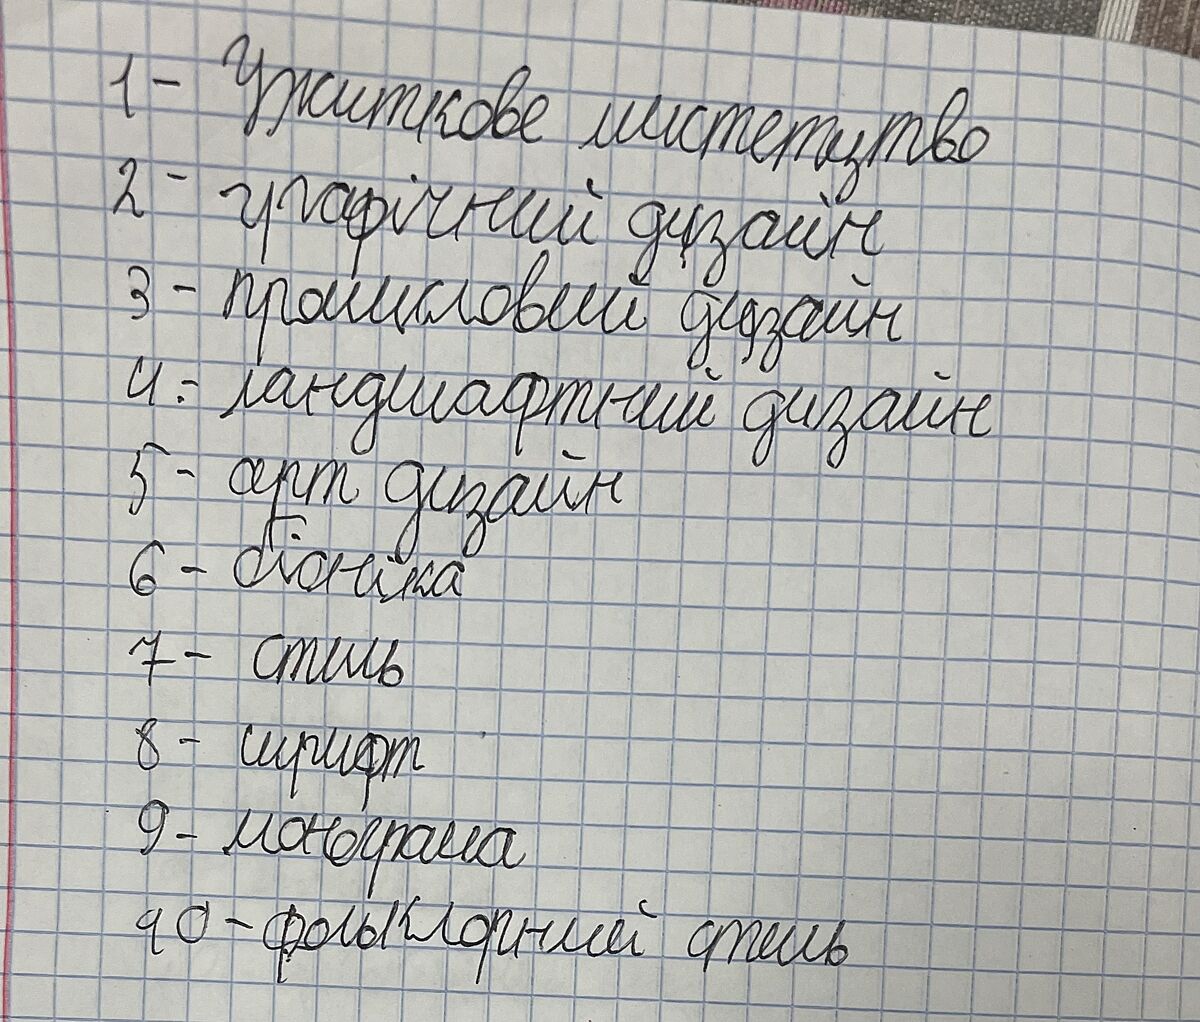 1 - Ужиткове мистецтво
2 - графічний дизайн
3 - промисловий дизайн
4 - ландшафтний дизайн
5 - арт дизайн
6 - біоніка
7 - стиль
8 - шрифт
9 - монограма
10 - фольклорний стиль